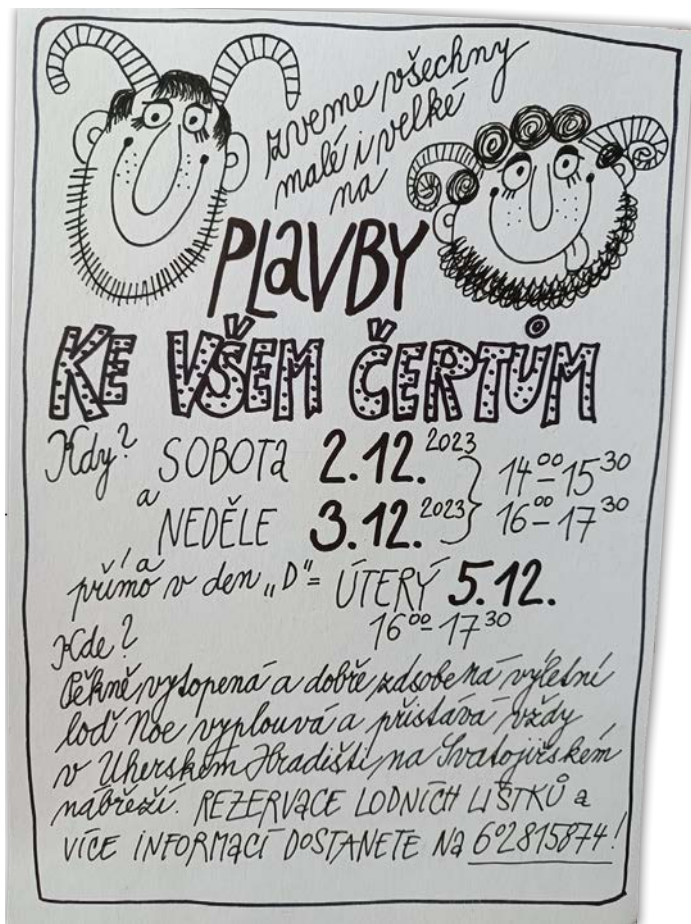 zveme všechny
malé i velké
na
PLAVBY
KE VŠEM ČERTŮM
Kdy? SOBOTA 2.12. 2023
a
NEDĚLE 3.12. 2023
14⁰⁰-15³⁰
16⁰⁰-17³⁰
a
přímo v den „D"= ÚTERÝ 5.12.
16⁰⁰-17³⁰
Kde?
Pěkně vytopená a dobře zásobená výletní
loď Noe vyplouvá a přistává vždy
v Uherském Hradišti, na Svatojiřském
nábřeží. REZERVACE LODNÍCH LÍSTKŮ a
VÍCE INFORMACÍ DOSTANETE Na 602815874!